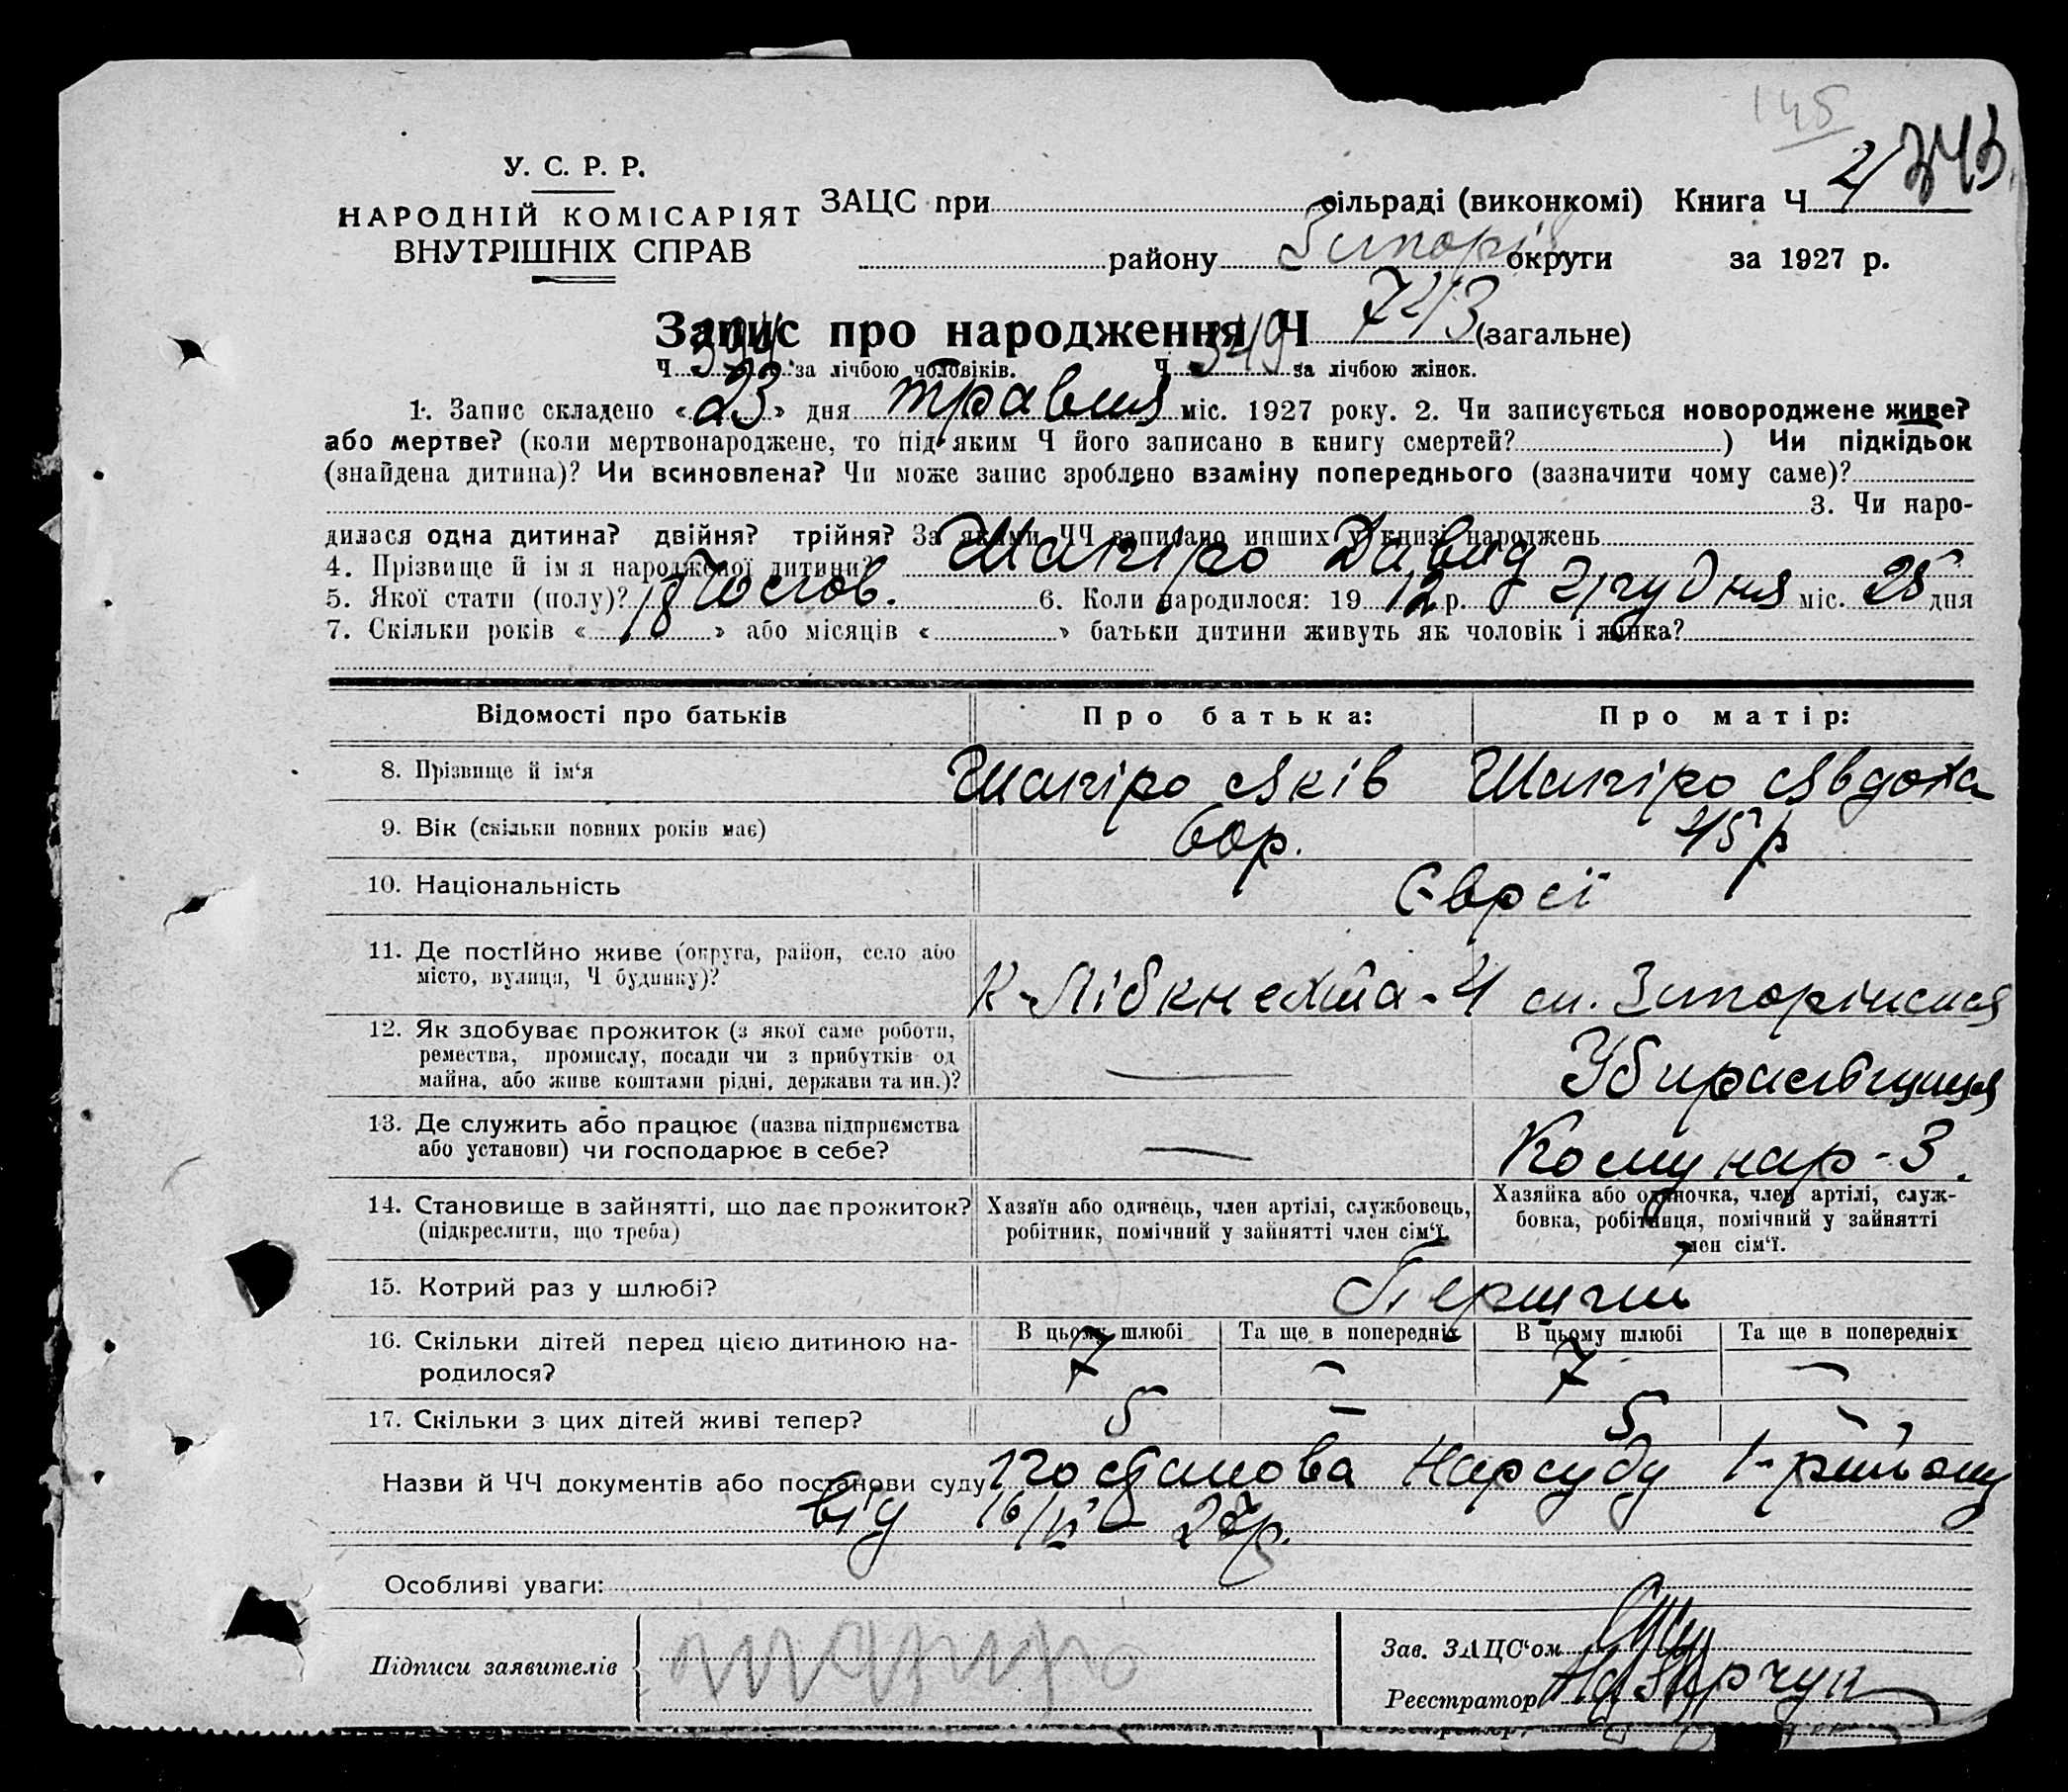 145
У. С. Р. Р.
НАРОДНІЙ КОМІСАРІЯТ
ВНУТРІШНІХ СПРАВ
ЗАЦС при сільраді (виконкомі) Книга Ч 4 343
району Запоріз округи за 1927 р.
Запис про народження Ч 743 (загальне)
Ч 394 за лічбою чоловіків. Ч 349 за лічбою жінок.
1. Запис складено « 23 » дня травня міс. 1927 року. 2. Чи записується новороджене живе?
або мертве? (коли мертвонароджене, то під яким Ч його записано в книгу смертей? ) Чи підкідьок
(знайдена дитина)? Чи всиновлена? Чи може запис зроблено взаміну попереднього (зазначити чому саме)?
3. Чи наро-
дилася одна дитина? двійня? трійня? За якими ЧЧ записано инших у книзі народжень
4. Прізвище й ім я народженої дитини? Шапіро Давид
5. Якої стати (полу)? Чолов. 6. Коли народилося: 19 12 р. грудня міс. 25 дня
7. Скільки років « 18 » або місяців « » батьки дитини живуть як чоловік і жінка?
Відомості про батьків Про батька: Про матір:
8. Прізвище й ім‘я Шапіро Яків Шапіро Явдоха
9. Вік (скільки повних років має) 60р. 45р
10. Національність Євреї
11. Де постійно живе (округа, район, село або
місто, вулиця, Ч будинку)? К-Лібкнехта-4 Запоріжжя
12. Як здобуває прожиток (з якої саме роботи,
ремества, промислу, посади чи з прибутків од
майна, або живе коштами рідні, держави та ин.)? —
13. Де служить або працює (назва підприємства
або установи) чи господарює в себе? — Комунар-3.
14. Становище в зайнятті, що дає прожиток?
(підкреслити, що треба)
Хазяїн або одинець, член артілі, службовець,
робітник, помічний у зайнятті член сім‘ї.
Хазяйка або одиночка, член артілі, служ-
бовка, робітниця, помічний у зайнятті
член сім‘ї.
15. Котрий раз у шлюбі? Перший
16. Скільки дітей перед цією дитиною на-
родилося?
В цьому шлюбі Та ще в попередніх В цьому шлюбі Та ще в попередніх
7 – 7 –
17. Скільки з цих дітей живі тепер? 5 – 5 –
Назви й ЧЧ документів або постанови суду Постанова Нарсуду 1-району
від 27р.
Особливі уваги:
Підписи заявителів шапиро
Зав. ЗАЦС‘ом
Реєстратор